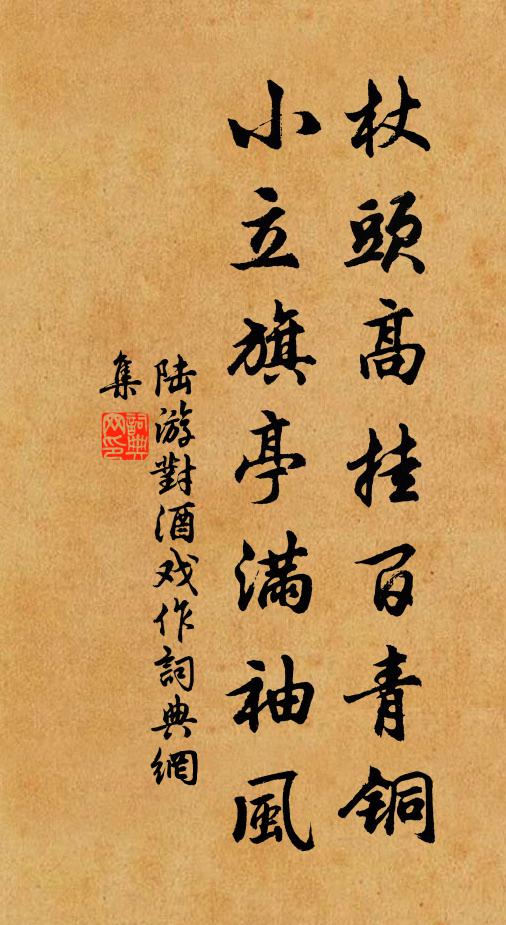 杖頭高挂百青銅
小立旗亭滿袖風
陸游對酒戏作詞典網
集
詞典網印